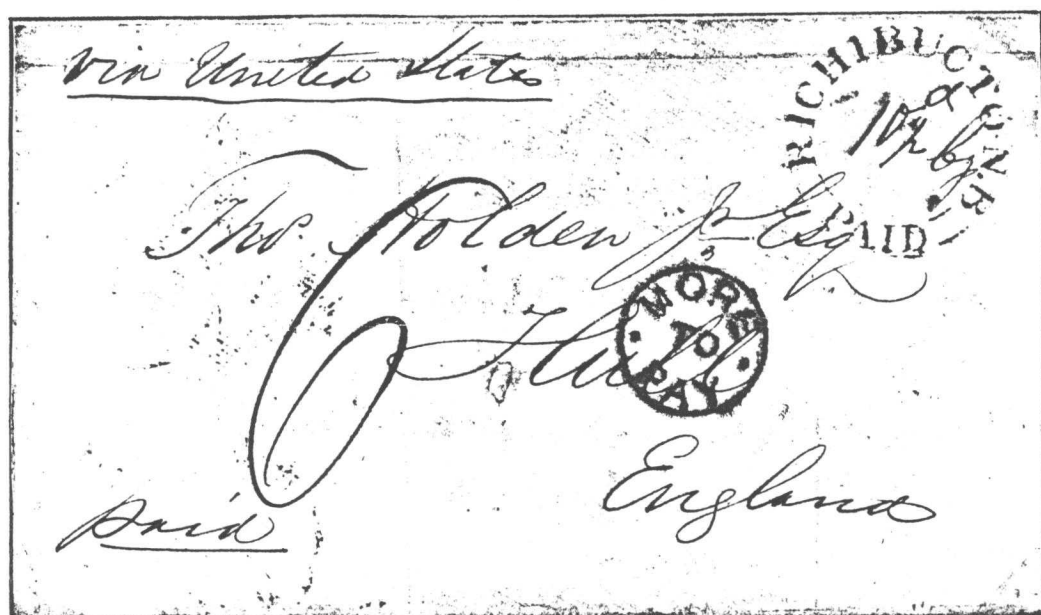 via United States
RICHIBUCTO N.B.
PAID
Thos. Holden Jr Esq
Hull
MORE TO PAY
6
England
paid